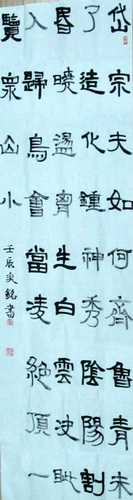 岱宗夫如何齊魯青未
了造化鍾神秀陰陽割
昏曉盪胷生白雲決眦
入歸鳥會當凌絕頂一
覽衆山小
壬辰奕銘書